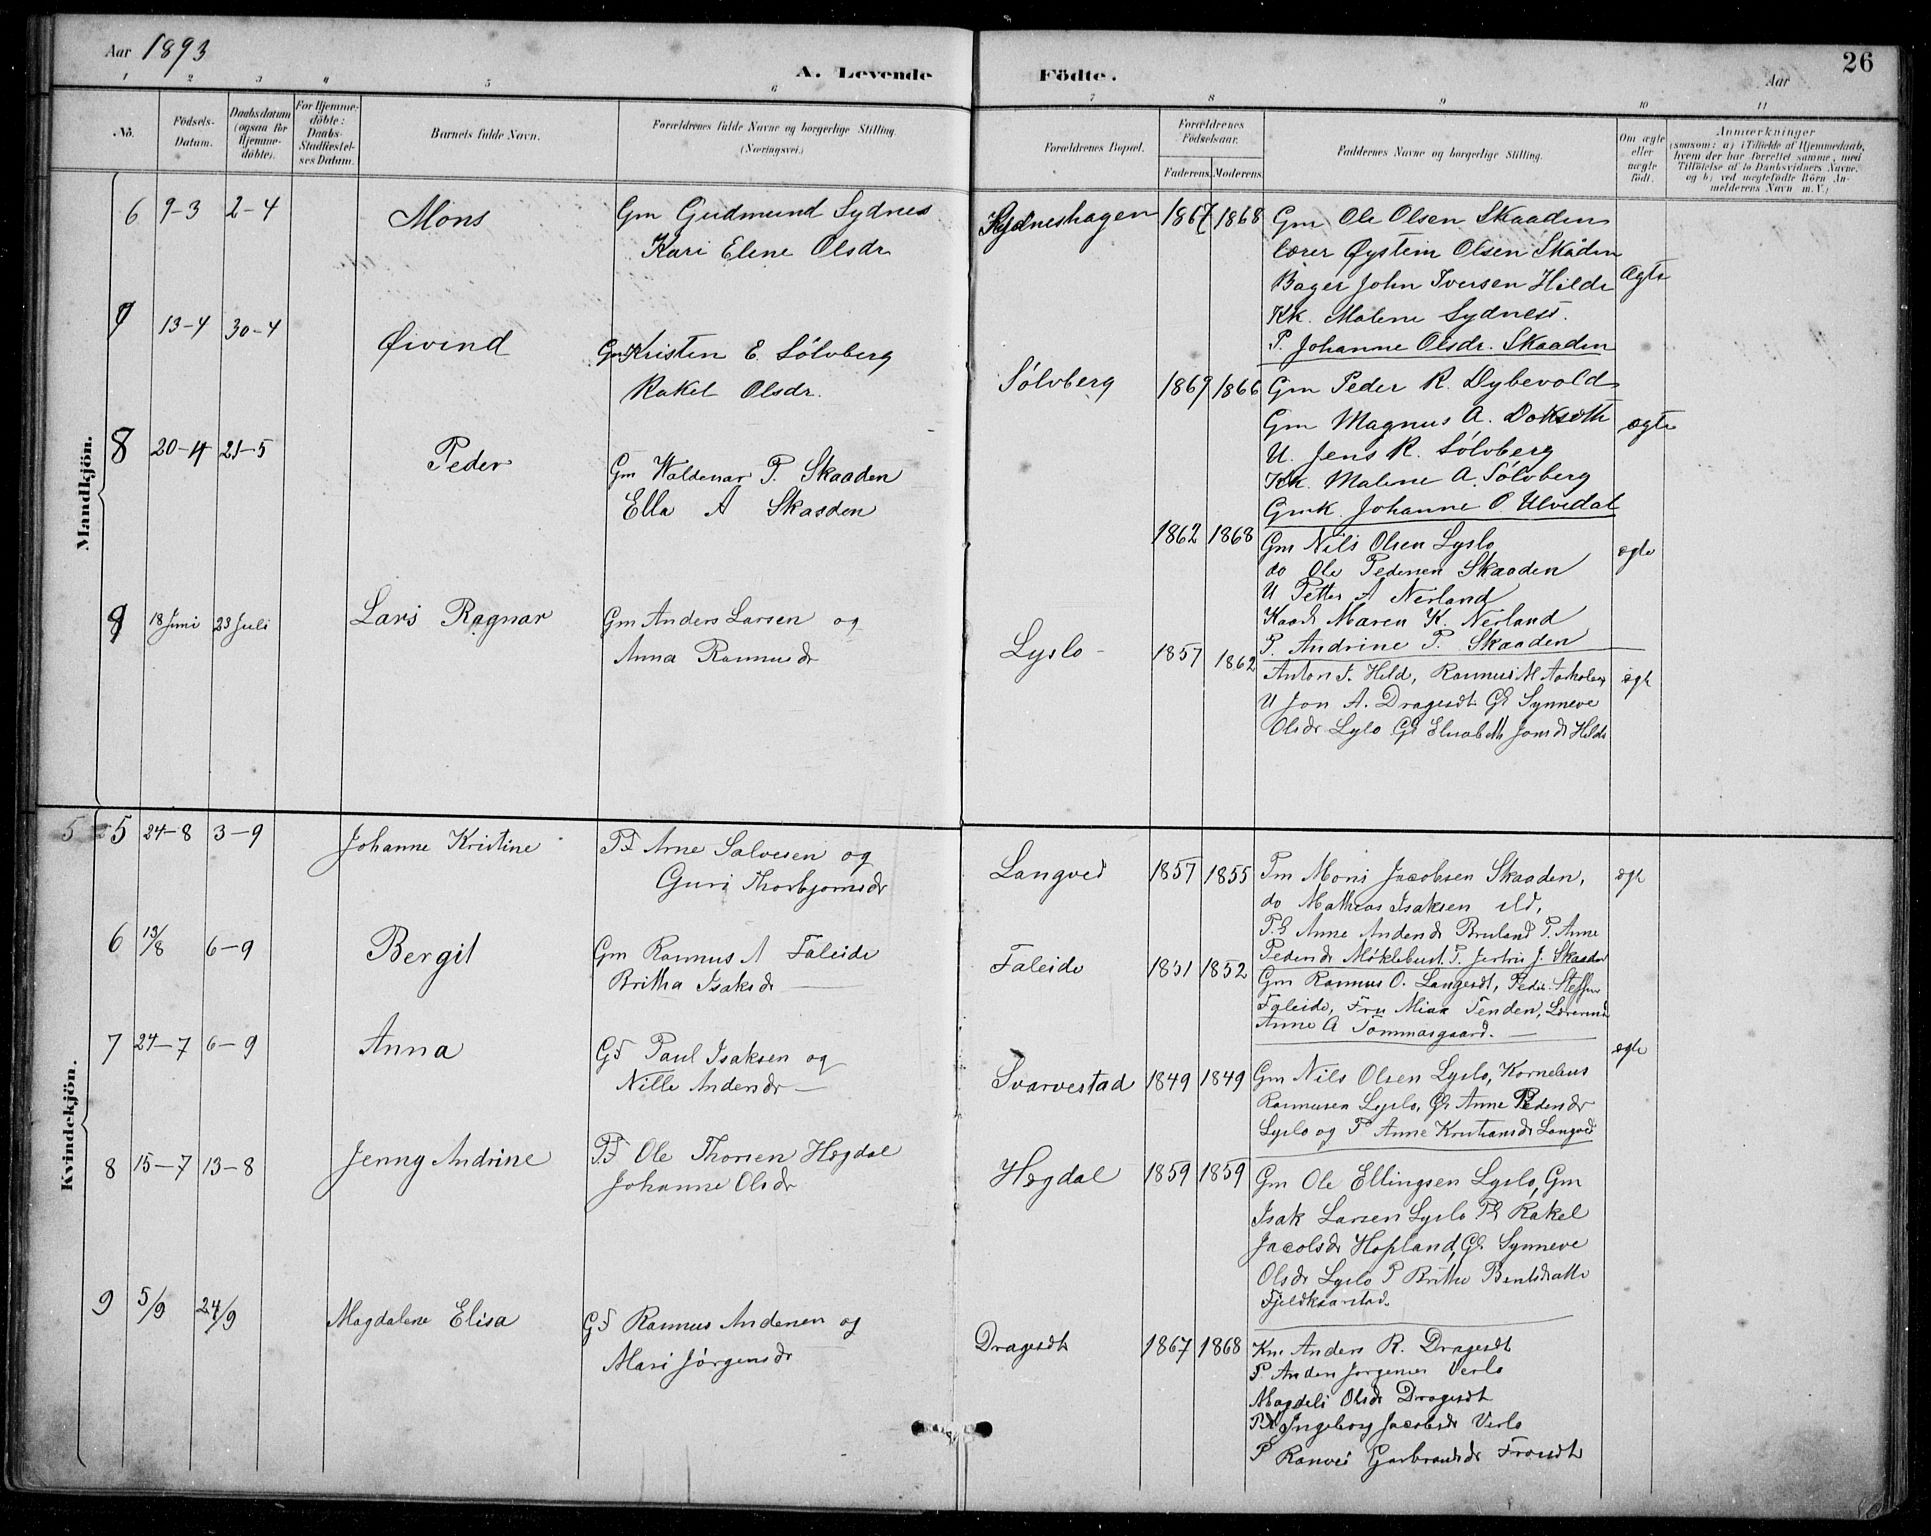 Aar 1893
A. Levende Födte.
Aar
26
1 2 3 4 5 6 7 8 9 10 11
No.
Födsels-Datum.
Daabsdatum (ogsaa for Hjemme-döbte).
For Hjemme-döbte: Daabs-Stadfæstel-ses Datum.
Barnets fulde Navn.
Forældrenes fulde Navne og borgerlige Stilling. (Næringsvei.)
Forældrenes Bopæl.
Forældrenes Födselsaar.
Faderens. Moderens.
Faddernes Navne og borgerlige Stilling.
Om ægte eller uægte födt.
Anmærkninger
(saasom: a) i Tilfælde af Hjemmedaab, hvem der har forrettet samme, med Tilföielse af to Daabsvidners Navne. og b) ved uægtefödte Börn An-melderens Navn m. V.)
Mandkjön.
6 9-3 2-4 Mons
Gm Gudmund Sydnes
Kari Elene Olsdr
Sydneshagen 1867 1868
Gm Ole Olsen Skaaden
Lærer Øystein Olsen Skåden
Bager John Iversen Hilde
Kk. Malene Sydness.
P. Johanne Olsdr. Skaaden
Ægte
7 13-4 30-4 Øivind
Gm Kristen E. Sölvberg
Rakel Olsdr.
Sölvberg 1869 1866
Gm Peder R. Dybevold
Gm Magnus A. Dokseth
U. Jens R. Sölvberg
Kk. Malene A. Sölvberg
Gmk. Johanne O. Ulvedal
ægte
8 20-4 21-5 Peder
Gm Waldemar P. Skaaden
Ella A Skaaden
1862 1868
Gm Nils Olsen Lyslo
do Ole Pedersen Skaaden
U Petter A Nerland
Maren K. Nerland
P. Andrine P. Skaaden
ægte
9 18 Juni 23 Juli Lars Ragnar
Gm Anders Larsen og
Anna Rasmusdr
Lyslo - 1857 1862
Anton J. Hild, Rasmus M
U Jon A. Dragesdt Ge Synneve
Olsdr Lyslo Ge Elisabeth Jonsdr Hilde
ægte
Kvindekjön.
5 5 24-8 3-9 Johanne Kristine
Pf Arne Salvesen og
Guri Thorbjornsdr
Langved 1857 1855
Pm Mons Jacobsen Skaaden,
do Mathias Isaksen ild,
P.E Anne Andersdr Bruland P. Anne
Pedersdr Myklebust. P. J. Skaaden
ægte
6 13/8 6-9 Bergit
Gm Rasmus A Faleide
Britha Isaksdr —
Faleide 1851 1852
Gm Rasmus O. Langesdt, Peder Steffens
Faleide, Fru Mina Tenden,
Anne A Tommasgaard. —
7 24-7 6-9 Anna
Gf Paul Isaksen og
Nille Andersdr —
Svarvestad 1849 1849
Gm Nils Olsen Lyslo, Kornelius
Rasmusen Lyslo, Ge Anne Pedersdr
Lyslo og P Anne Kristiansdr Langved
ægte
8 15-7 13-8 Jenny Andrine
Pf Ole Thorsen Hegdal
Johanne Olsdr
Hegdal 1859 1859
Gm Ole Ellingsen Lyslo, Gm
Isak Larsen Lyslo PE Rakel
Jacobsdr Hopland, Ge Synneve
Olsdr Lyslo P Britha Bentsdatte
Fjeldkaarstad.
9 5/9 24/9 Magdalene Elisa
Gf Rasmus Andersen og
Mari Jörgensdr
Dragesdt 1867 1868
Km Anders R. Dragesdt
P. Anders Jorgensen Verlo
Magdeli Olsdr Dragesdt
Ingeborg Jacobsdr Verlo
P Ranvei Gerbrandsdr